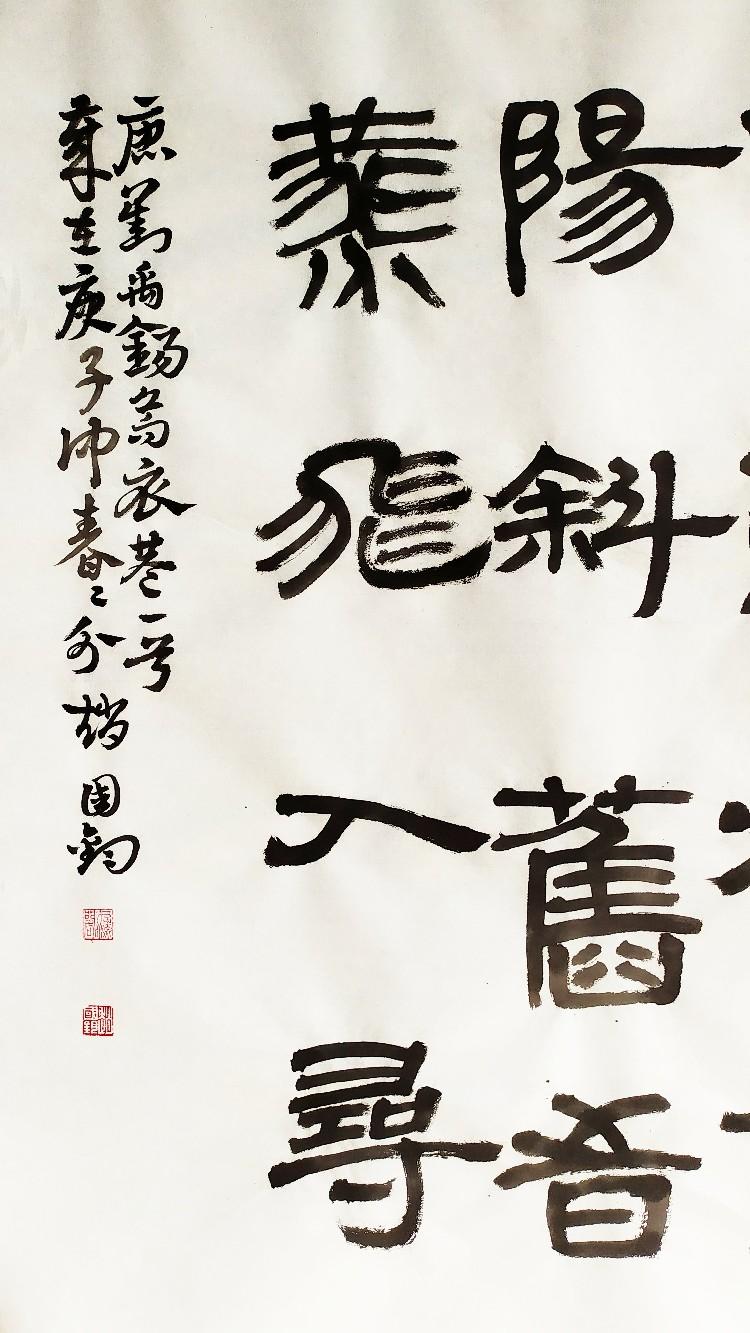 陽斜舊旹
燕飛入尋
唐劉禹錫烏衣巷一首
歲在庚子仲春〻分趙國鈞